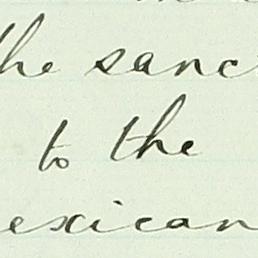 the sanc
to the
exican